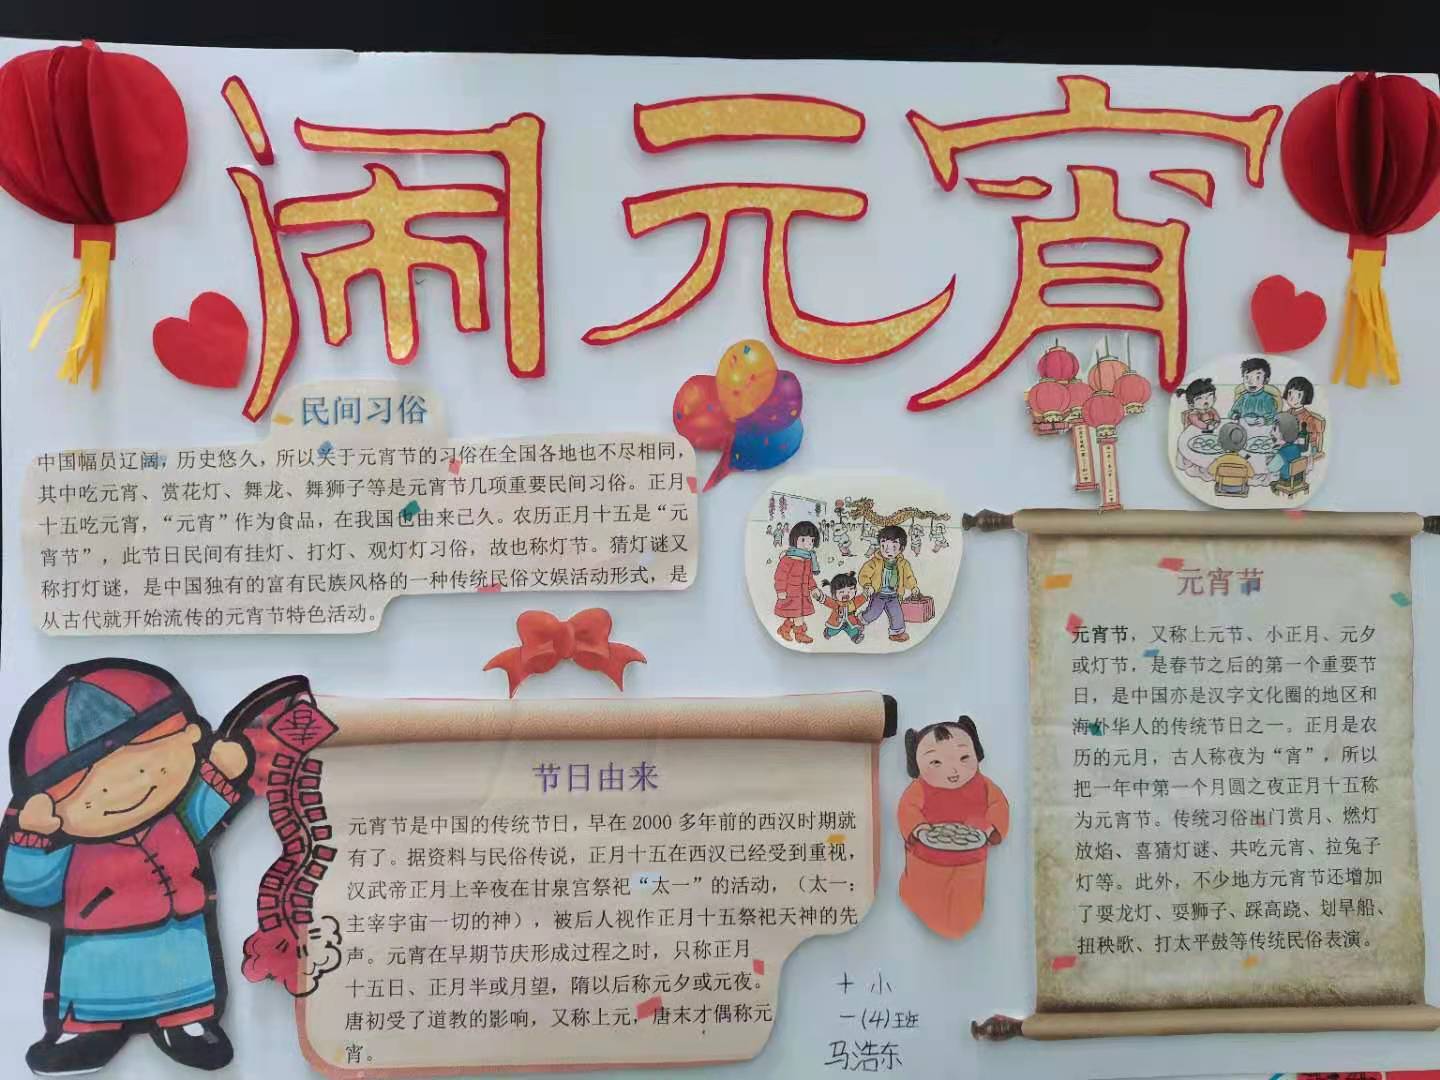 闹元宵
民间习俗
中国幅员辽阔，历史悠久，所以关于元宵节的习俗在全国各地也不尽相同，
其中吃元宵、赏花灯、舞龙、舞狮子等是元宵节几项重要民间习俗。正月
十五吃元宵，“元宵”作为食品，在我国也由来已久。农历正月十五是“元
宵节”，此节日民间有挂灯、打灯、观灯灯习俗，故也称灯节。猜灯谜又
称打灯谜，是中国独有的富有民族风格的一种传统民俗文娱活动形式，是
从古代就开始流传的元宵节特色活动。
春
节日由来
元宵节是中国的传统节日，早在 2000 多年前的西汉时期就
有了。据资料与民俗传说，正月十五在西汉已经受到重视，
汉武帝正月上辛夜在甘泉宫祭祀“太一”的活动，（太一：
主宰宇宙一切的神），被后人视作正月十五祭祀天神的先
声。元宵在早期节庆形成过程之时，只称正月
十五日、正月半或月望，隋以后称元夕或元夜。
唐初受了道教的影响，又称上元，唐末才偶称元
宵。
元宵节
元宵节，又称上元节、小正月、元夕
或灯节，是春节之后的第一个重要节
日，是中国亦是汉字文化圈的地区和
海外华人的传统节日之一。正月是农
历的元月，古人称夜为“宵”，所以
把一年中第一个月圆之夜正月十五称
为元宵节。传统习俗出门赏月、燃灯
放焰、喜猜灯谜、共吃元宵、拉兔子
灯等。此外，不少地方元宵节还增加
了耍龙灯、耍狮子、踩高跷、划旱船、
扭秧歌、打太平鼓等传统民俗表演。
十小
一(4)班
马浩东